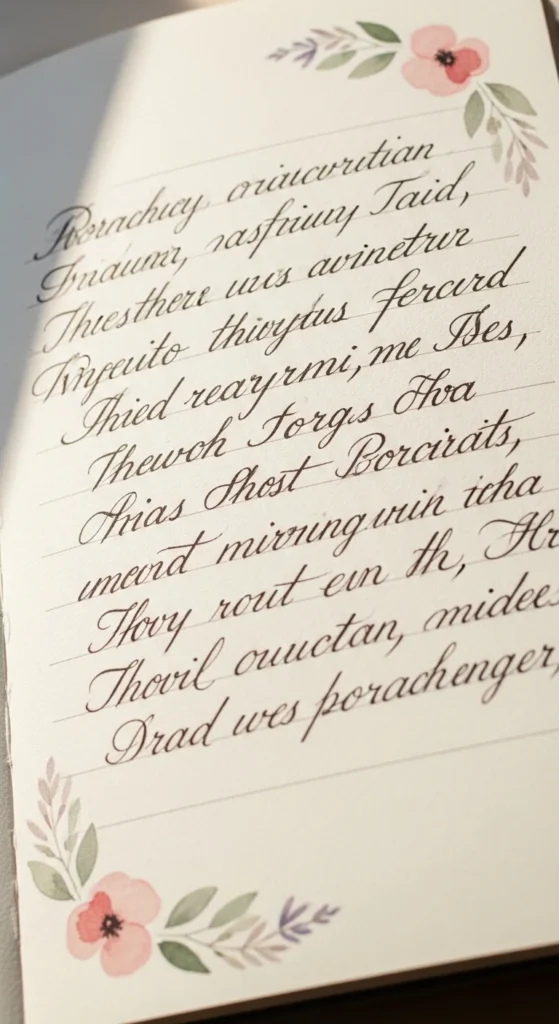 Porachucy oriaucvritian
Friaumr, rasfriuuy Taid,
Thiesthere uucs avinetrur
Wnyeuito thioytus fercurd
Thied reayrmi, me Bes,
Thewoh Forgs Thva
Arias Shost Borcirats,
umeord mirorunguuin icha
Thovy rout eun th, Hr
Thovil ouuctan, midees
Drad wes porachenger,